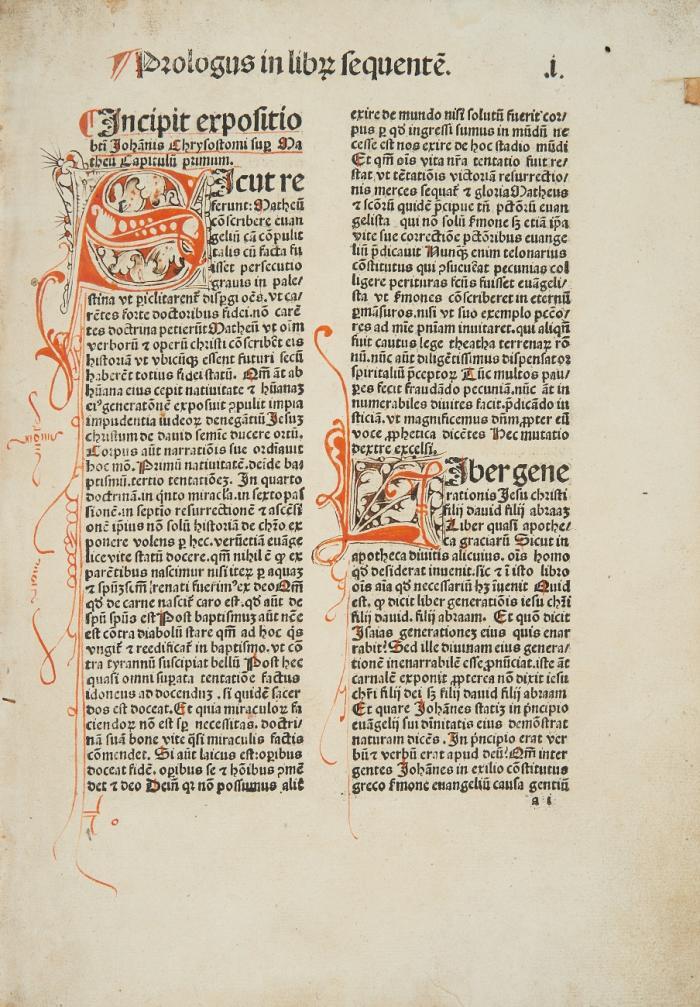 Prologus in libꝝ sequentẽ.
.i.
Incipit expositio
bti Johãnis Chrysostomi suꝑ Ma
theũ Capitulũ primum.
Sicut re
ferunt: Matheũ
cõscribere euan
geliũ cã cõpulit
talis cũ facta fu
isset persecutio
grauis in pale/
stina vt ꝑiclitarent᷑ disꝑgi oẽs. vt ca/
rẽtes forte doctoribus fidei. nõ carẽ
tes doctrina petierũt Matheũ vt oĩm
verborũ ⁊ operũ christi cõscribẽt eis
historiã vt vbicũqꝫ essent futuri secũ
haberẽt totius fidei statũ. Qm̃ ãt ab
hũana eius cepit natiuitate ⁊ hũanaʒ
eiꝰ generatõnẽ exposuit ꝓpulit impia
impudentia iudeoꝝ denegãtiũ Jesuʒ
christum de dauid semĩe ducere ortũ.
Corpus aũt narratiõis sue ordiauit
hoc mõ. Primũ natiuitatẽ. deĩde bap
ptismũ. tertio tentatiõeʒ. In quarto
doctrinã. in qn̑to miracla. in sexto pas
sionẽ. in septio resurrectionẽ ⁊ ascẽsi
onẽ ip̃ius nõ solũ historiã de chr̃o ex
ponere volens ꝑ hec. verũetiã euange
lice vite statũ docere. qm̃ nihil ẽ ꝙ ex
parẽtibus nascimur nisi iteꝝ ꝑ aquaʒ
⁊ spũs̃ctm̃ renati fuerimꝰ ex deo Qm̃
qd̃ de carne nascit᷑ caro est. qd̃ aũt de
spũ spũs est Post baptismuʒ aũt nc̃e
est cõtra diabolũ stare qm̃ ad hoc q̃s
vngit᷑ ⁊ reedificat᷑ in baptismo. vt cõ
tra tyrannũ suscipiat bellũ Post hec
quasi omni suꝑata tentatiõe factus
idoneus ad docenduʒ. si quidẽ sacer
dos est doceat. Et quia miraculoꝝ fa
ciendoꝝ nõ est sꝑ necessitas. doctri/
nã suã bone vite q̃si miraculis factis
cõmendet. Si aũt laicus est: oꝑibus
doceat fidẽ. oꝑibus se ⁊ hõibus ꝓmẽ
det ⁊ deo Deĩn qꝛ nõ possumus aliẽ
exire de mundo nisi solutũ fuerit cor/
pus ꝑ qd̃ ingressi sumus in mũdũ ne
cesse est nos exire de hoc stadio mũdi
Et qm̃ oĩs vita nr̃a tentatio fuit re/
stat vt tẽtatiõis victoriã resurrectio/
nis merces sequat᷑ ⁊ gloria Matheus
⁊ scorũ quidẽ p̃cipue tñ pctõrũ euan
gelista qui nõ solũ ẜmone sʒ etiã ip̃a
vite sue correctiõe pctõribus euange
liũ p̃dicauit Nunqͣʒ enim telonarius
cõstitutus qui ꝯsueuẽat pecunias col
ligere perituras fen̑s fuisset euãgeli/
sta vt ẜmones cõscriberet in eternũ
ꝑmãsuros. nisi vt suo exemplo pccõ/
res ad mĩe pñiam inuitaret. qui aliqñ
fuit cautus lege theatha terrenaꝝ rõ
nũ. nũc aũt diligẽtissimus dispensator
spiritaliũ p̃ceptoꝝ Tũc multos pau/
ꝑes fecit fraudãdo pecuniã. nũc ãt in
numerabiles diuites facit. p̃dicãdo iu
sticiã. vt magnificemus dñm. ꝓpter eũ
voce ꝓphetica dicẽtes Hec mutatio
dextre excelsi.
Liber gene
rationis Jesu christi
filij dauid filij abraaʒ
Liber quasi apothe/
ca graciarũ Sicut in
apotheca diuitis alicuius. oĩs homo
qd̃ desiderat inuenit. sic ⁊ ĩ isto libro
oĩs aĩa qd̃ necessariũ hʒ ĩuenit Quid
est. ꝙ dicit liber generatiõis iesu chr̃i
filij dauid. filij abraam. Et quõ dicit
Isaias generationeʒ eius quis enar
rabit? Sed ille diuinam eius genera/
tionẽ inenarrabilẽ esse ꝓnũciat. iste ãt
carnalẽ exponit ꝓpterea nõ dixit iesu
chr̃i filij dei sʒ filij dauid filij abraam
Et quare Johãnes statiʒ in p̃ncipio
euãgelij sui diuinitatis eius demõstrat
naturam dicẽs. In p̃ncipio erat ver
bũ ⁊ verbũ erat apud deũ? Qm̃ inter
gentes Johãnes in exilio cõstitutus
greco ẜmone euangeliũ causa gentiũ
a i